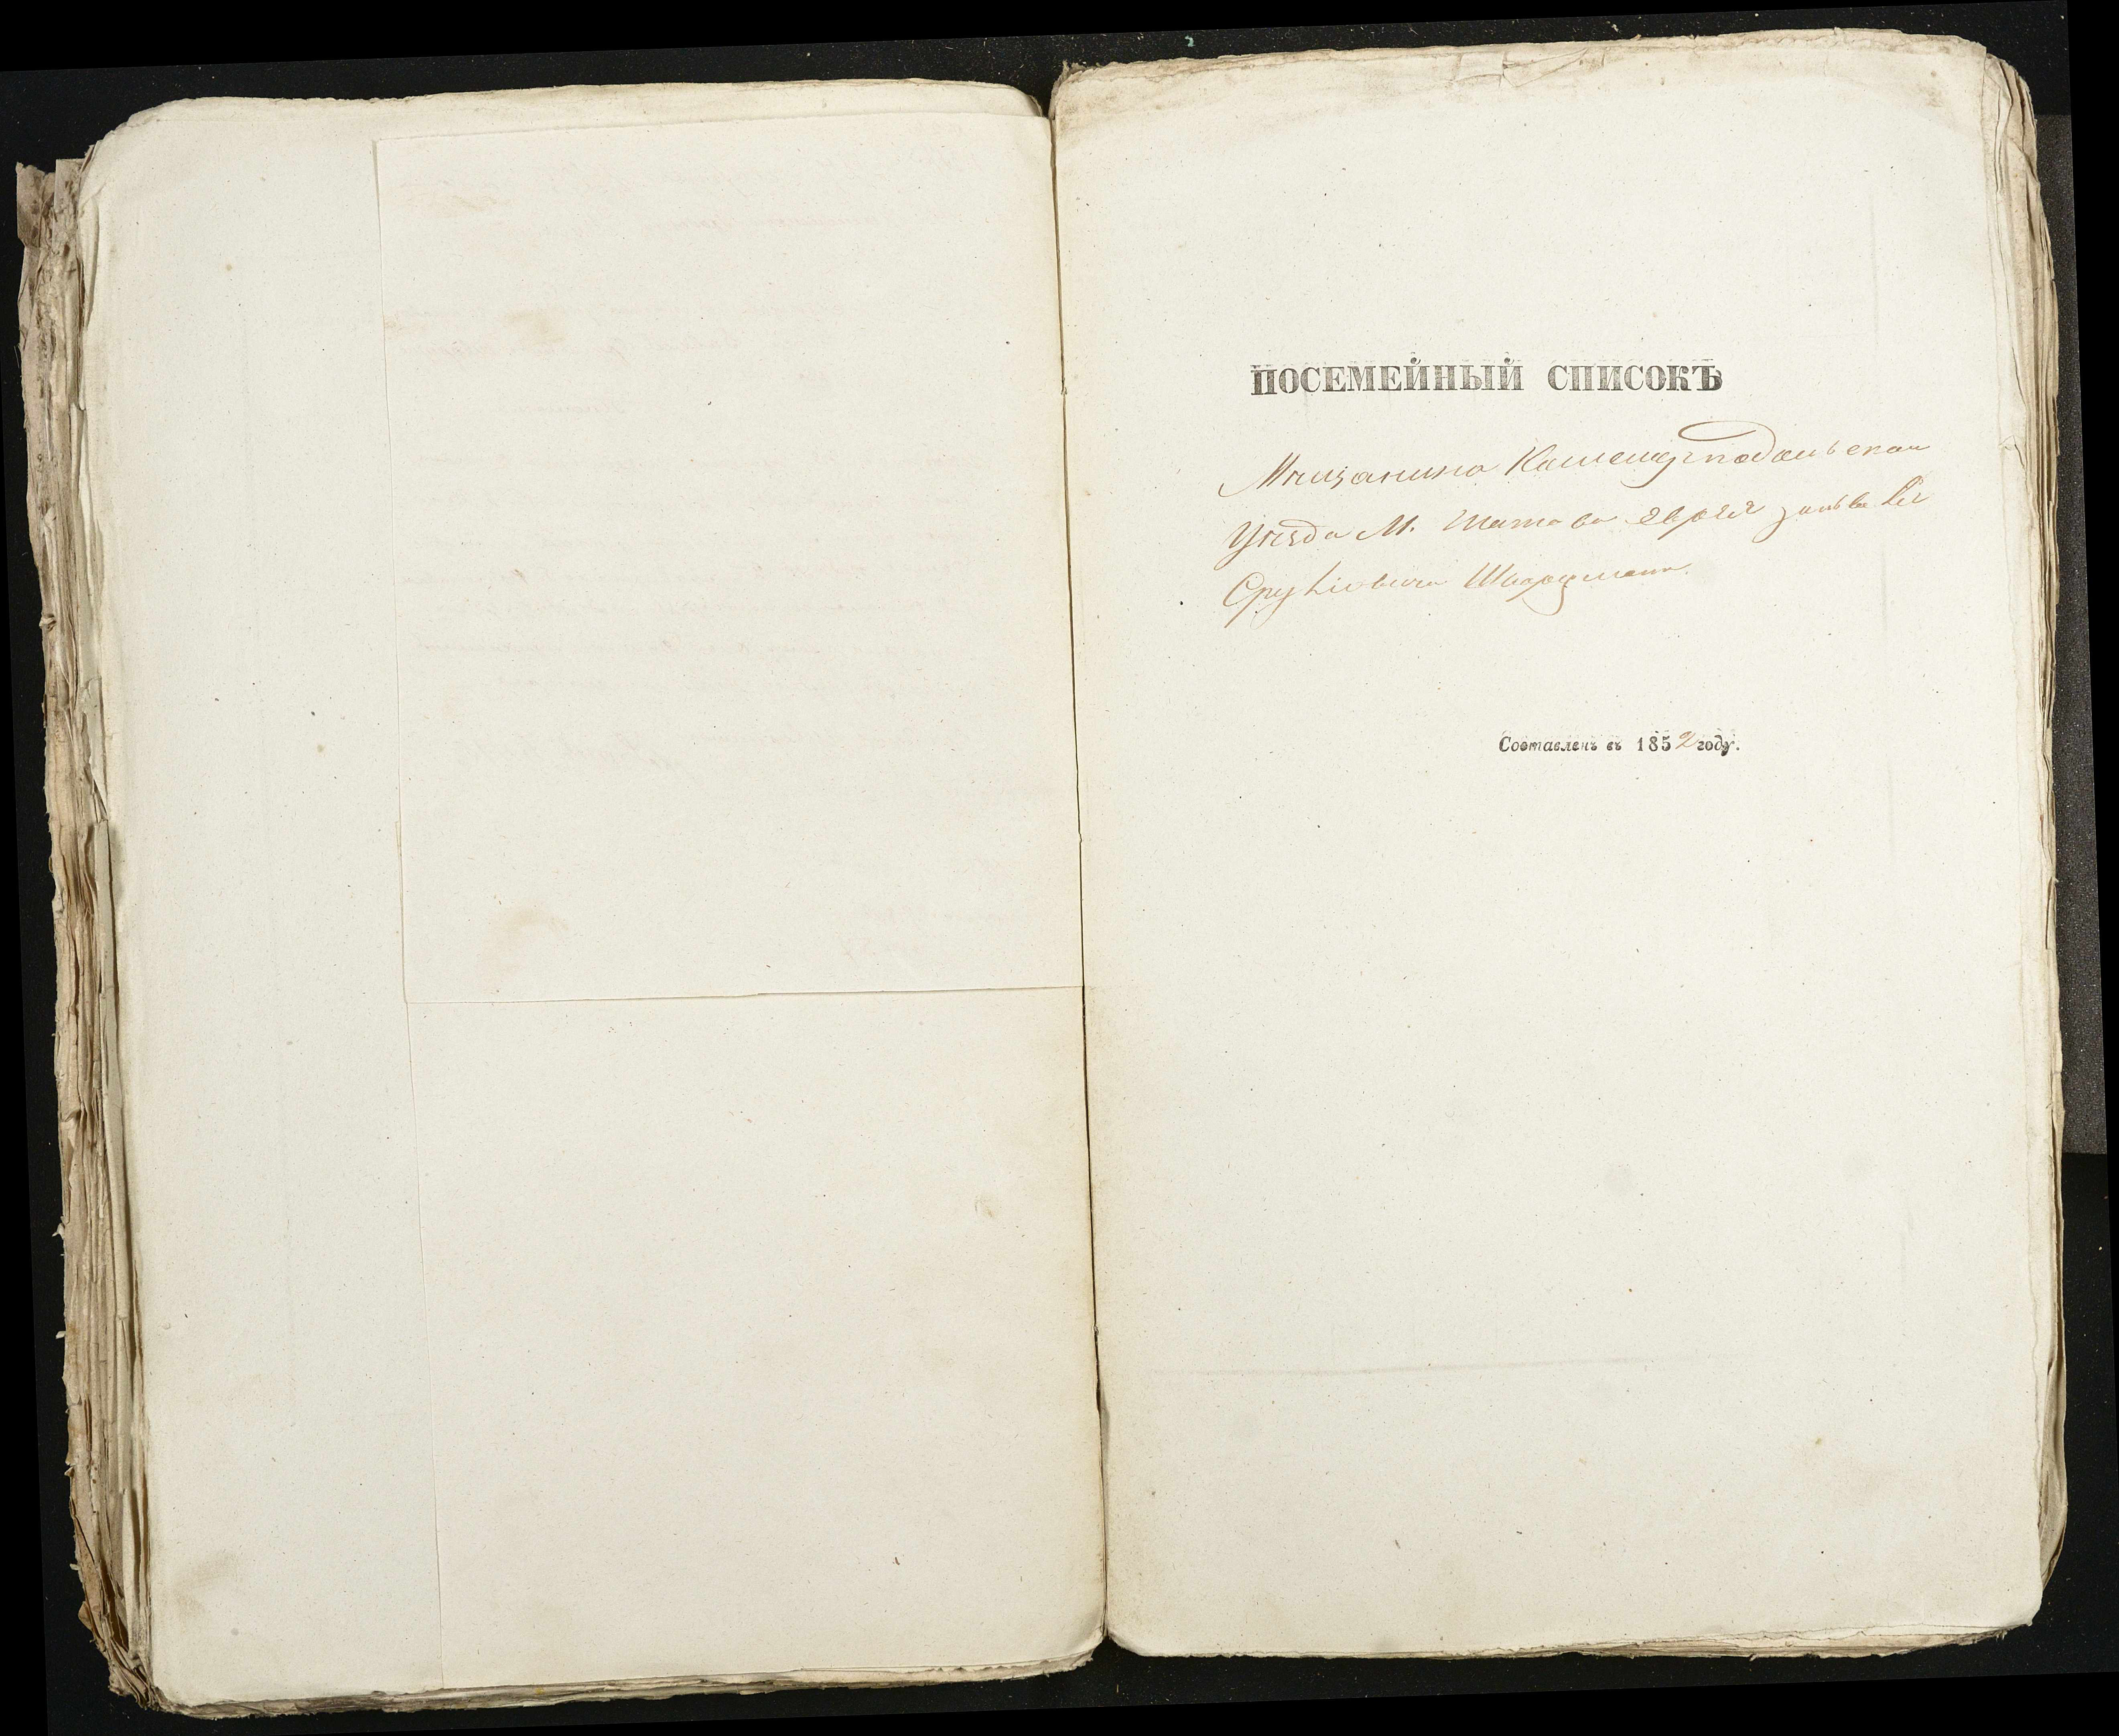 ПОСЕМЕЙНЫЙ СПИСОКЪ
Мѣщанина Каменецподольскаго
Уѣзда М. Шатова еврея
Срулiовича Шварцмана
Составленъ въ 1852 году.